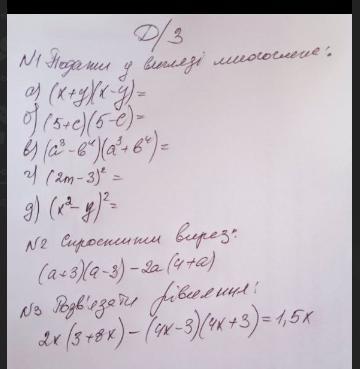 Д/З
N1 Подати у вигляді многочлена:
а) (x+y)(x-y)=
б) (5+c)(5-c)=
в) (a³-b⁴)(a³+b⁴)=
г) (2m-3)²=
д) (x²-y)²=
N2 Спростити вираз:
(a+3)(a-3)-2a(4+a)
N3 Розв'язати рівняння:
2x(3+8x)-(4x-3)(4x+3)=1,5x